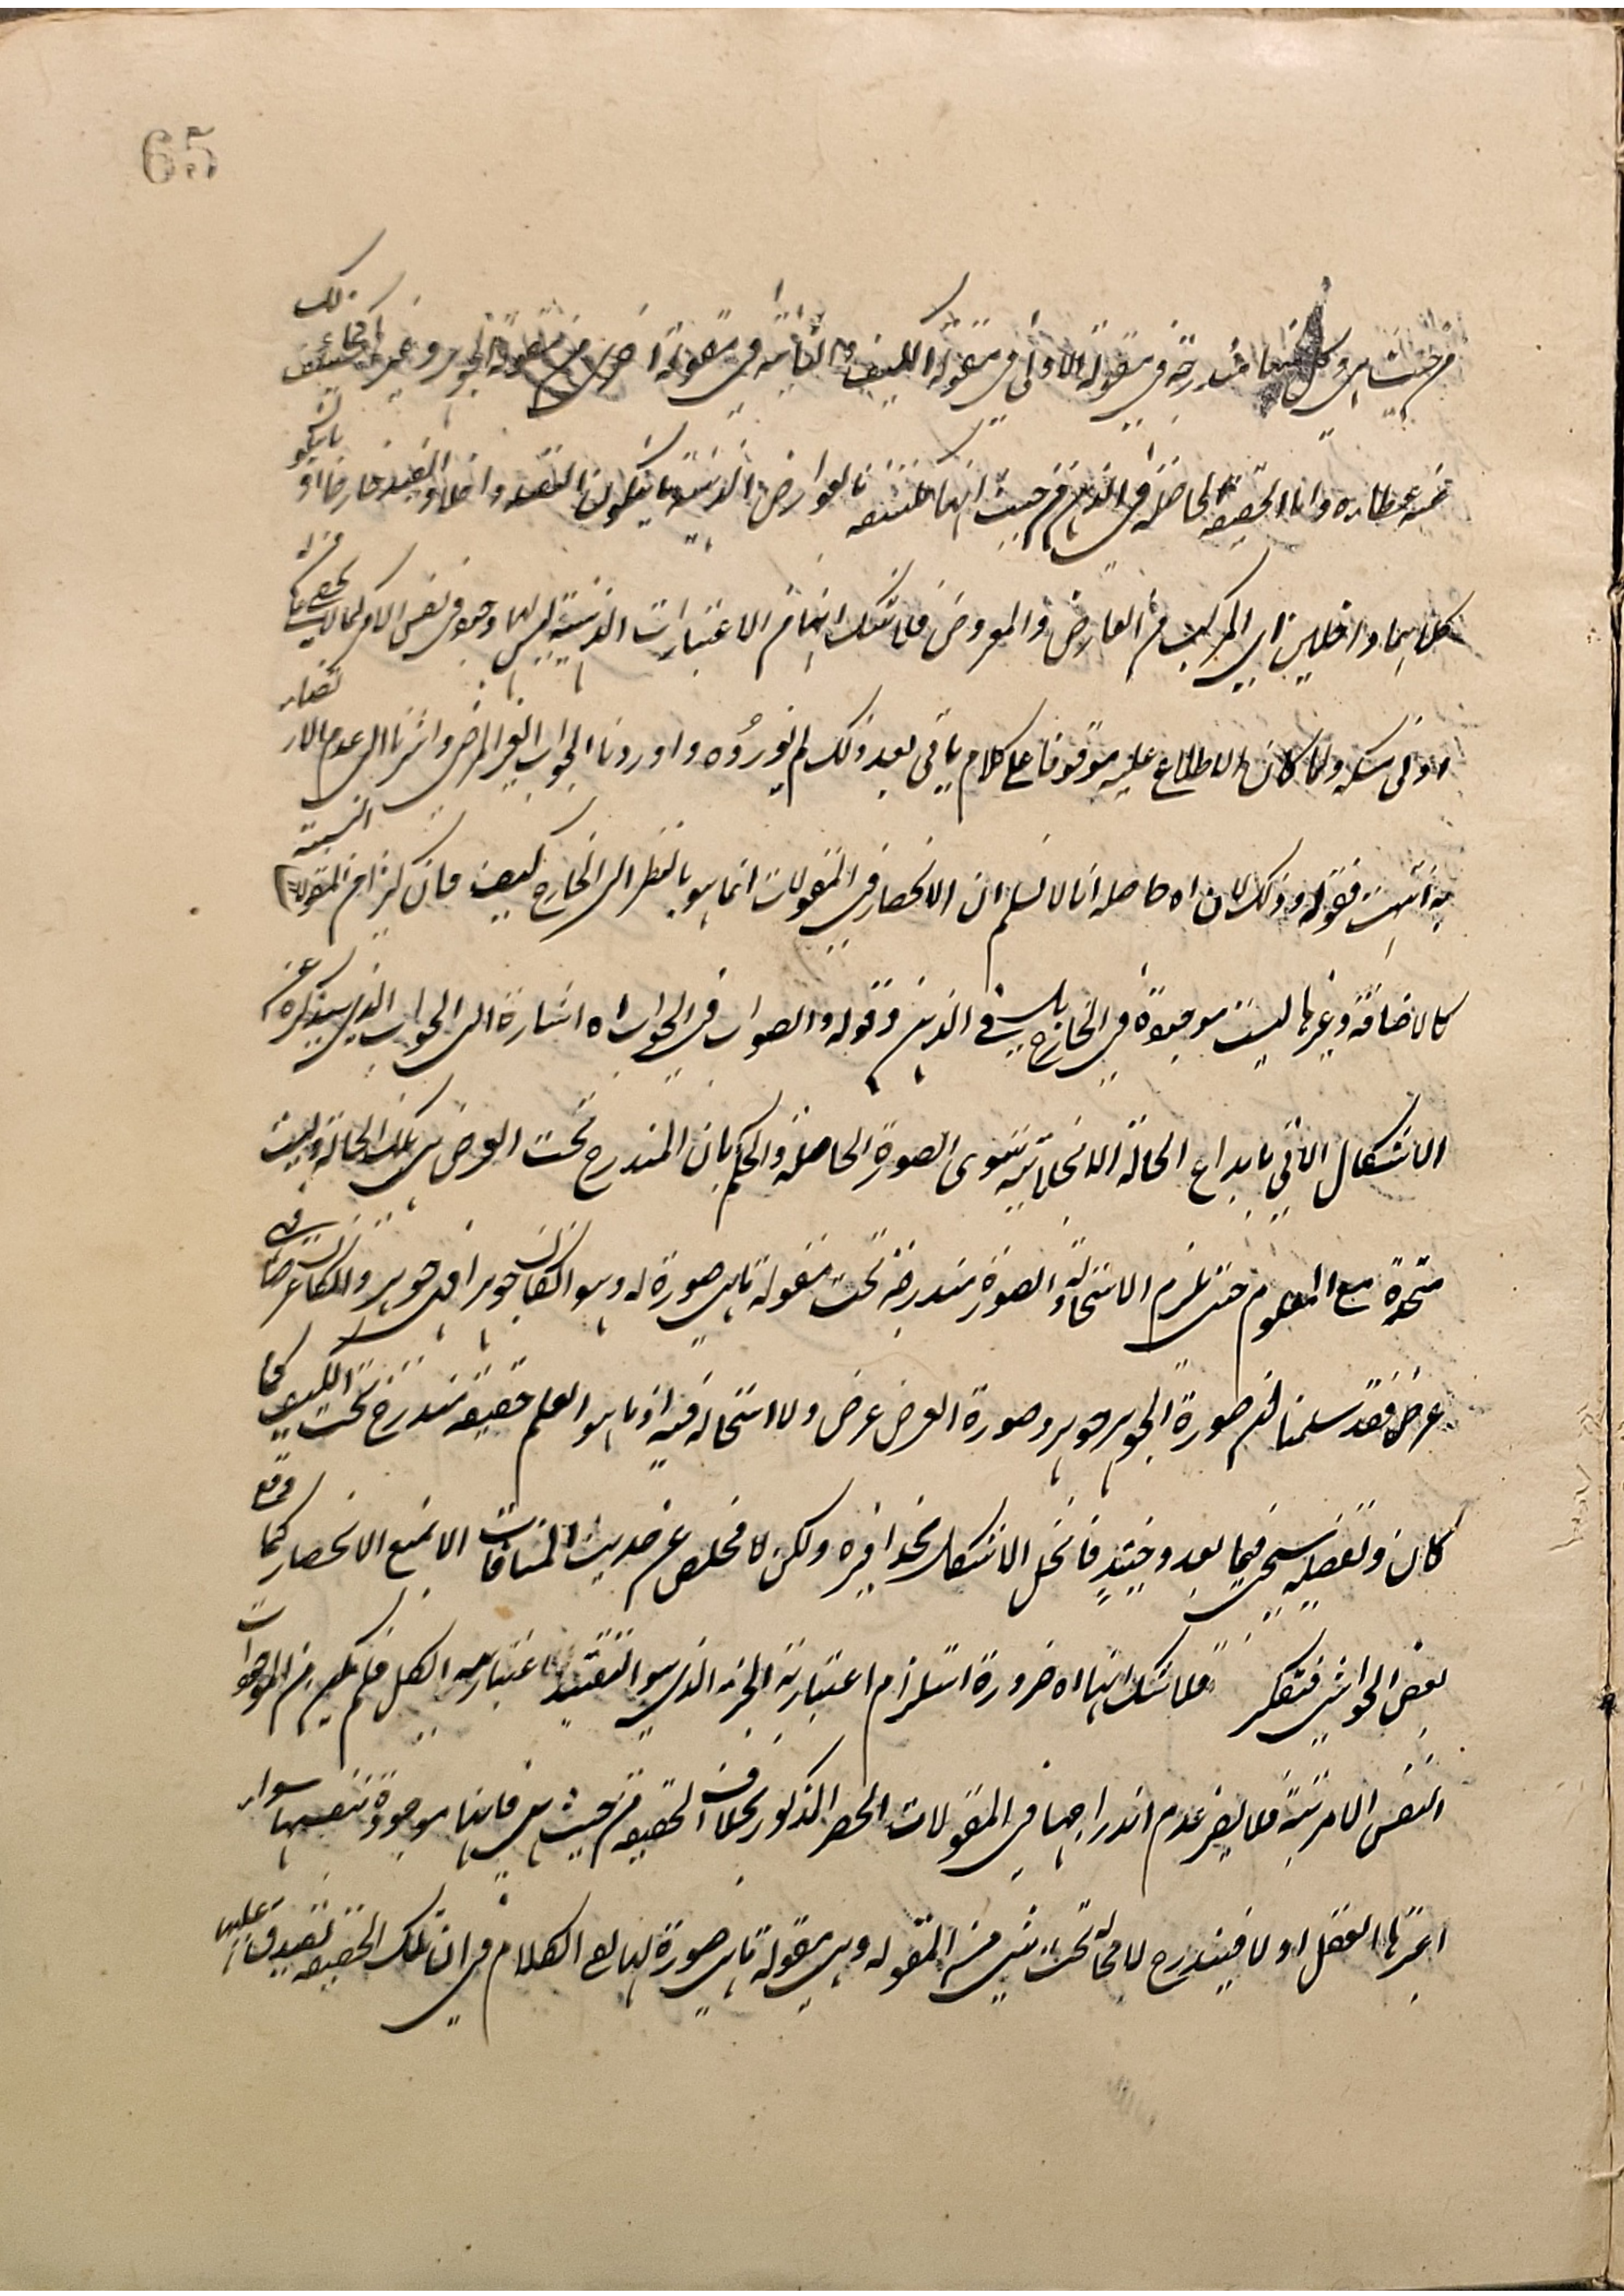 65
من حيث هي وكل منهما مندرجة في مقولة الاولى في مقولة الكيف والثانية في مقولة اخرى من مقولة الجوهر وغيره كما ذلك
واما الحقيقة الحاصلة في الذهن من حيث انها مكتنفة بالعوارض الذهنية بان يكون التقييد داخلا والقيد خارجا او بان يكون
كلاهما داخلين اي المركب من العارض والمعروض فلا شك انها من الاعتبارات الذهنية ليس لها وجود في نفس الامر كما لا يخفى على من له
ادنى مسكة ولما كان الاطلاع عليه موقوفا على كلام ياتي بعد ذلك لم نورده واوردنا الجواب الغير المرضي واشرنا الى عدم الارتضاء
به انتهت فقوله وذلك لان اه حاصله انا لا نسلم ان الانحصار في المقولات انما هو بالنظر الى الخارج كيف فان كثيرا من المقولات النسبية
كالاضافة وغيرها ليست موجودة في الخارج بل في الذهن وقوله والصواب في الجواب اه اشارة الى الجواب الذي سيذكره عن
الاشكال الاتي بابداع الحالة الانجلائية سوى الصورة الحاصلة والحكم بان المندرج تحت العرض هي تلك الحالة وليست
متحدة مع المعلوم حتى يلزم الاستحالة والصورة مندرجة تحت مقولة ما هي صورة له وهو ان كان جوهرا فهي جوهر وان كان عرضا فهي
عرض فقد سلمنا ان صورة الجوهر جوهر وصورة العرض عرض ولا استحالة فيه اذ ما هو العلم حقيقة مندرج تحت الكيف كما
كان وتفصيله سيجيء فيما بعد وحينئذ فانحل الاشكال بحذافيره ولكن لا مخلص عن حديث المنافات الا بمنع الانحصار كما وقع
بعض الحواشي فتفكر فلا شك انها اه ضرورة استلزام اعتبارية الجزء الذي هو التقييد اعتبارية الكل فلم يكن من الموجودات
النفس الامرية فلا يضر عدم اندراجها في المقولات الحصر المذكور بخلاف الحقيقة من حيث هي فانها موجودة بنفسها سواء
اعتبرها العقل او لا فيندرج لا محالة تحت شيء من المقولة وهي مقولة ما هي صورة لها بقي الكلام في ان تلك الحقيقة تصدق عليها